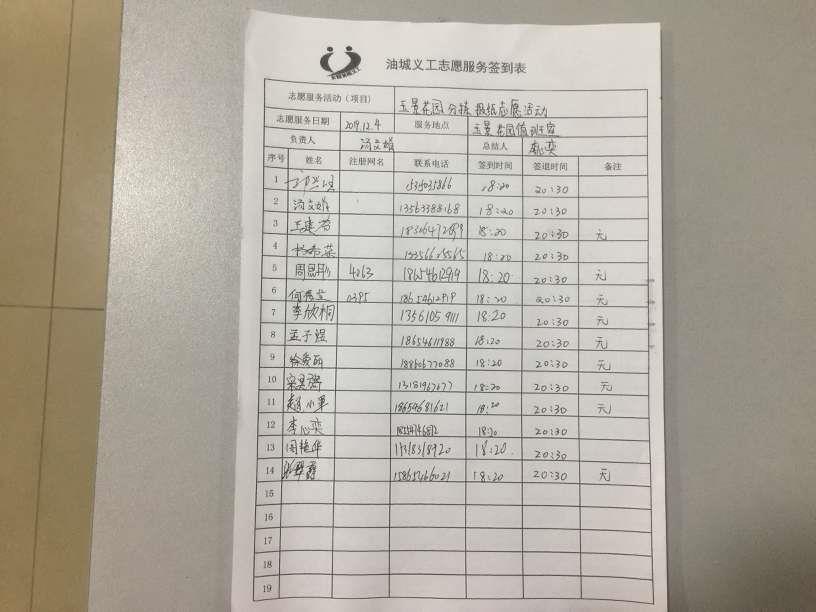 油城义工志愿服务签到表
志愿服务活动（项目） 玉景花园分拣报纸志愿活动
志愿服务日期 2019.12.4 服务地点 玉景花园值班室
负责人 汤文娟 总结人
序号 姓名 注册网名 联系电话 签到时间 签退时间 备注
1 18:20 20:30
2 汤文娟 13563388168 18:20 20:30
3 18:20 20:30 无
4 18:20 20:30
5 4263 18654612919 18:20 20:30 无
6 0395 18654612919 18:20 20:30 无
7 李欣桐 13561059111 18:20 20:30 无
8 孟子煜 18654611988 18:20 20:30 无
9 徐爱丽 18860677088 18:20 20:30 无
10 13181967677 18:20 20:30 无
11 赵小军 18654681621 18:20 20:30 无
12 李心奕 18:20 20:30
13 周艳华 18:20 20:30
14 15865466021 18:20 20:30 无
15
16
17
18
19